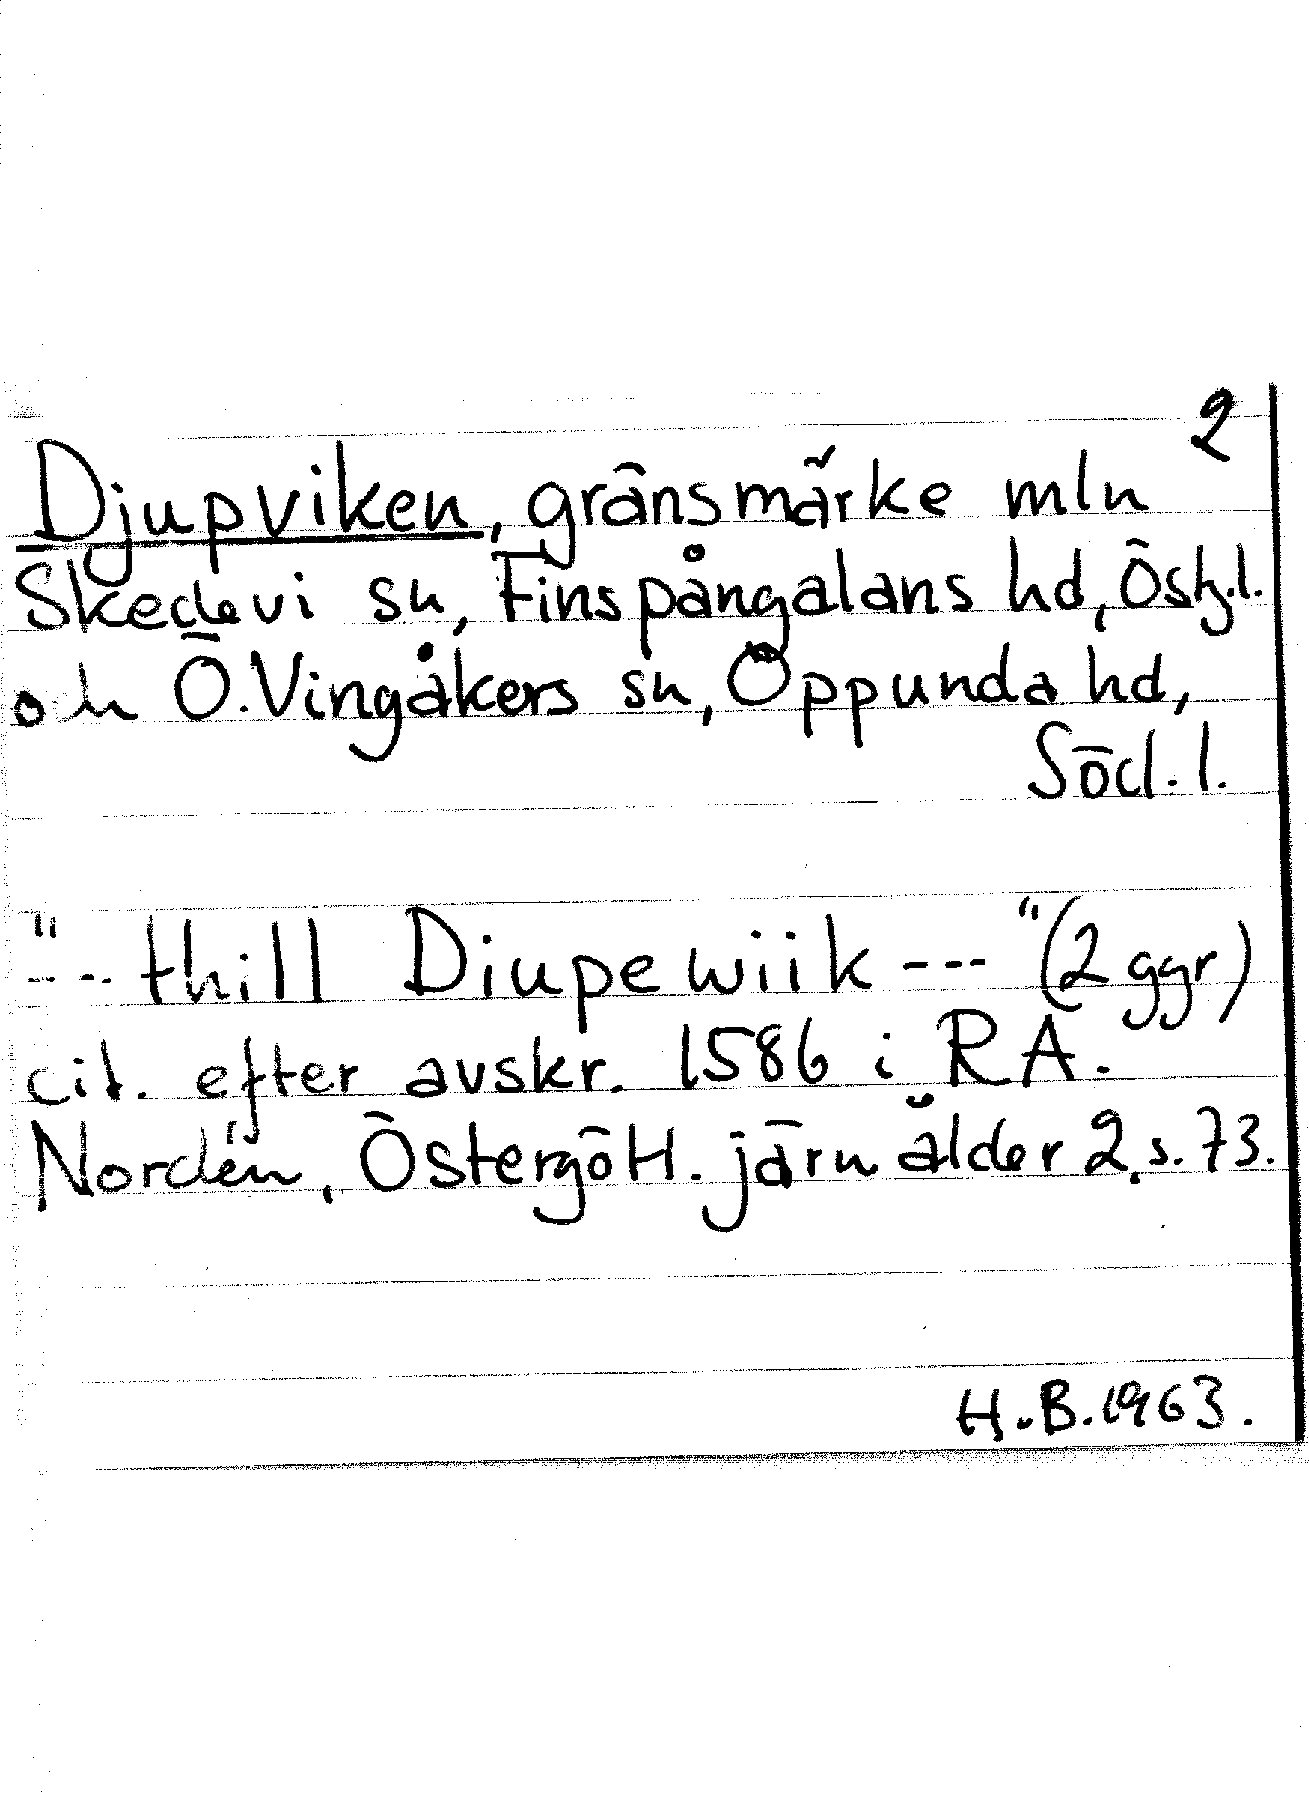 2
Djupviken, gränsmärke mln
Skedevi sn, Finspångalans hd, Östg.l.
och Ö. Vingåkers sn, Oppunda hd,
Söd.l.
"--- thill Diupewiik ---" (2 ggr)
cit. efter avskr. 1586 i RA.
Nordén, Östergötl. järnålder 2, s. 73.
H.B. 1963.